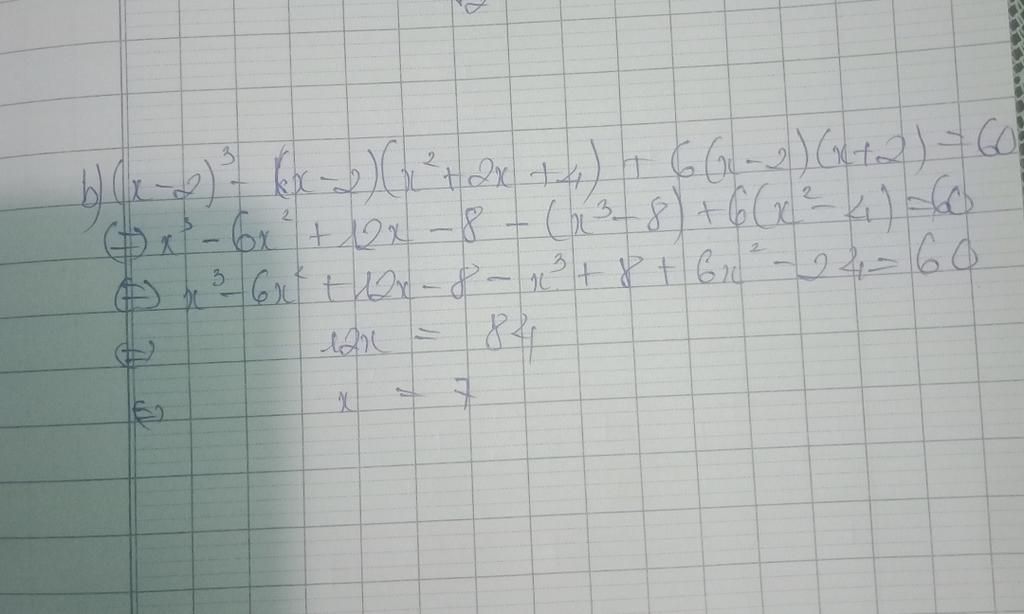 b) (x-2)³ - (x-2)(x²+2x+4) + 6(x-2)(x+2) = 60
⇔ x³ - 6x² + 12x - 8 - (x³-8) + 6(x²-4) = 60
⇔ x³ - 6x² + 12x - 8 - x³ + 8 + 6x² - 24 = 60
⇔ 12x = 84
⇔ x = 7